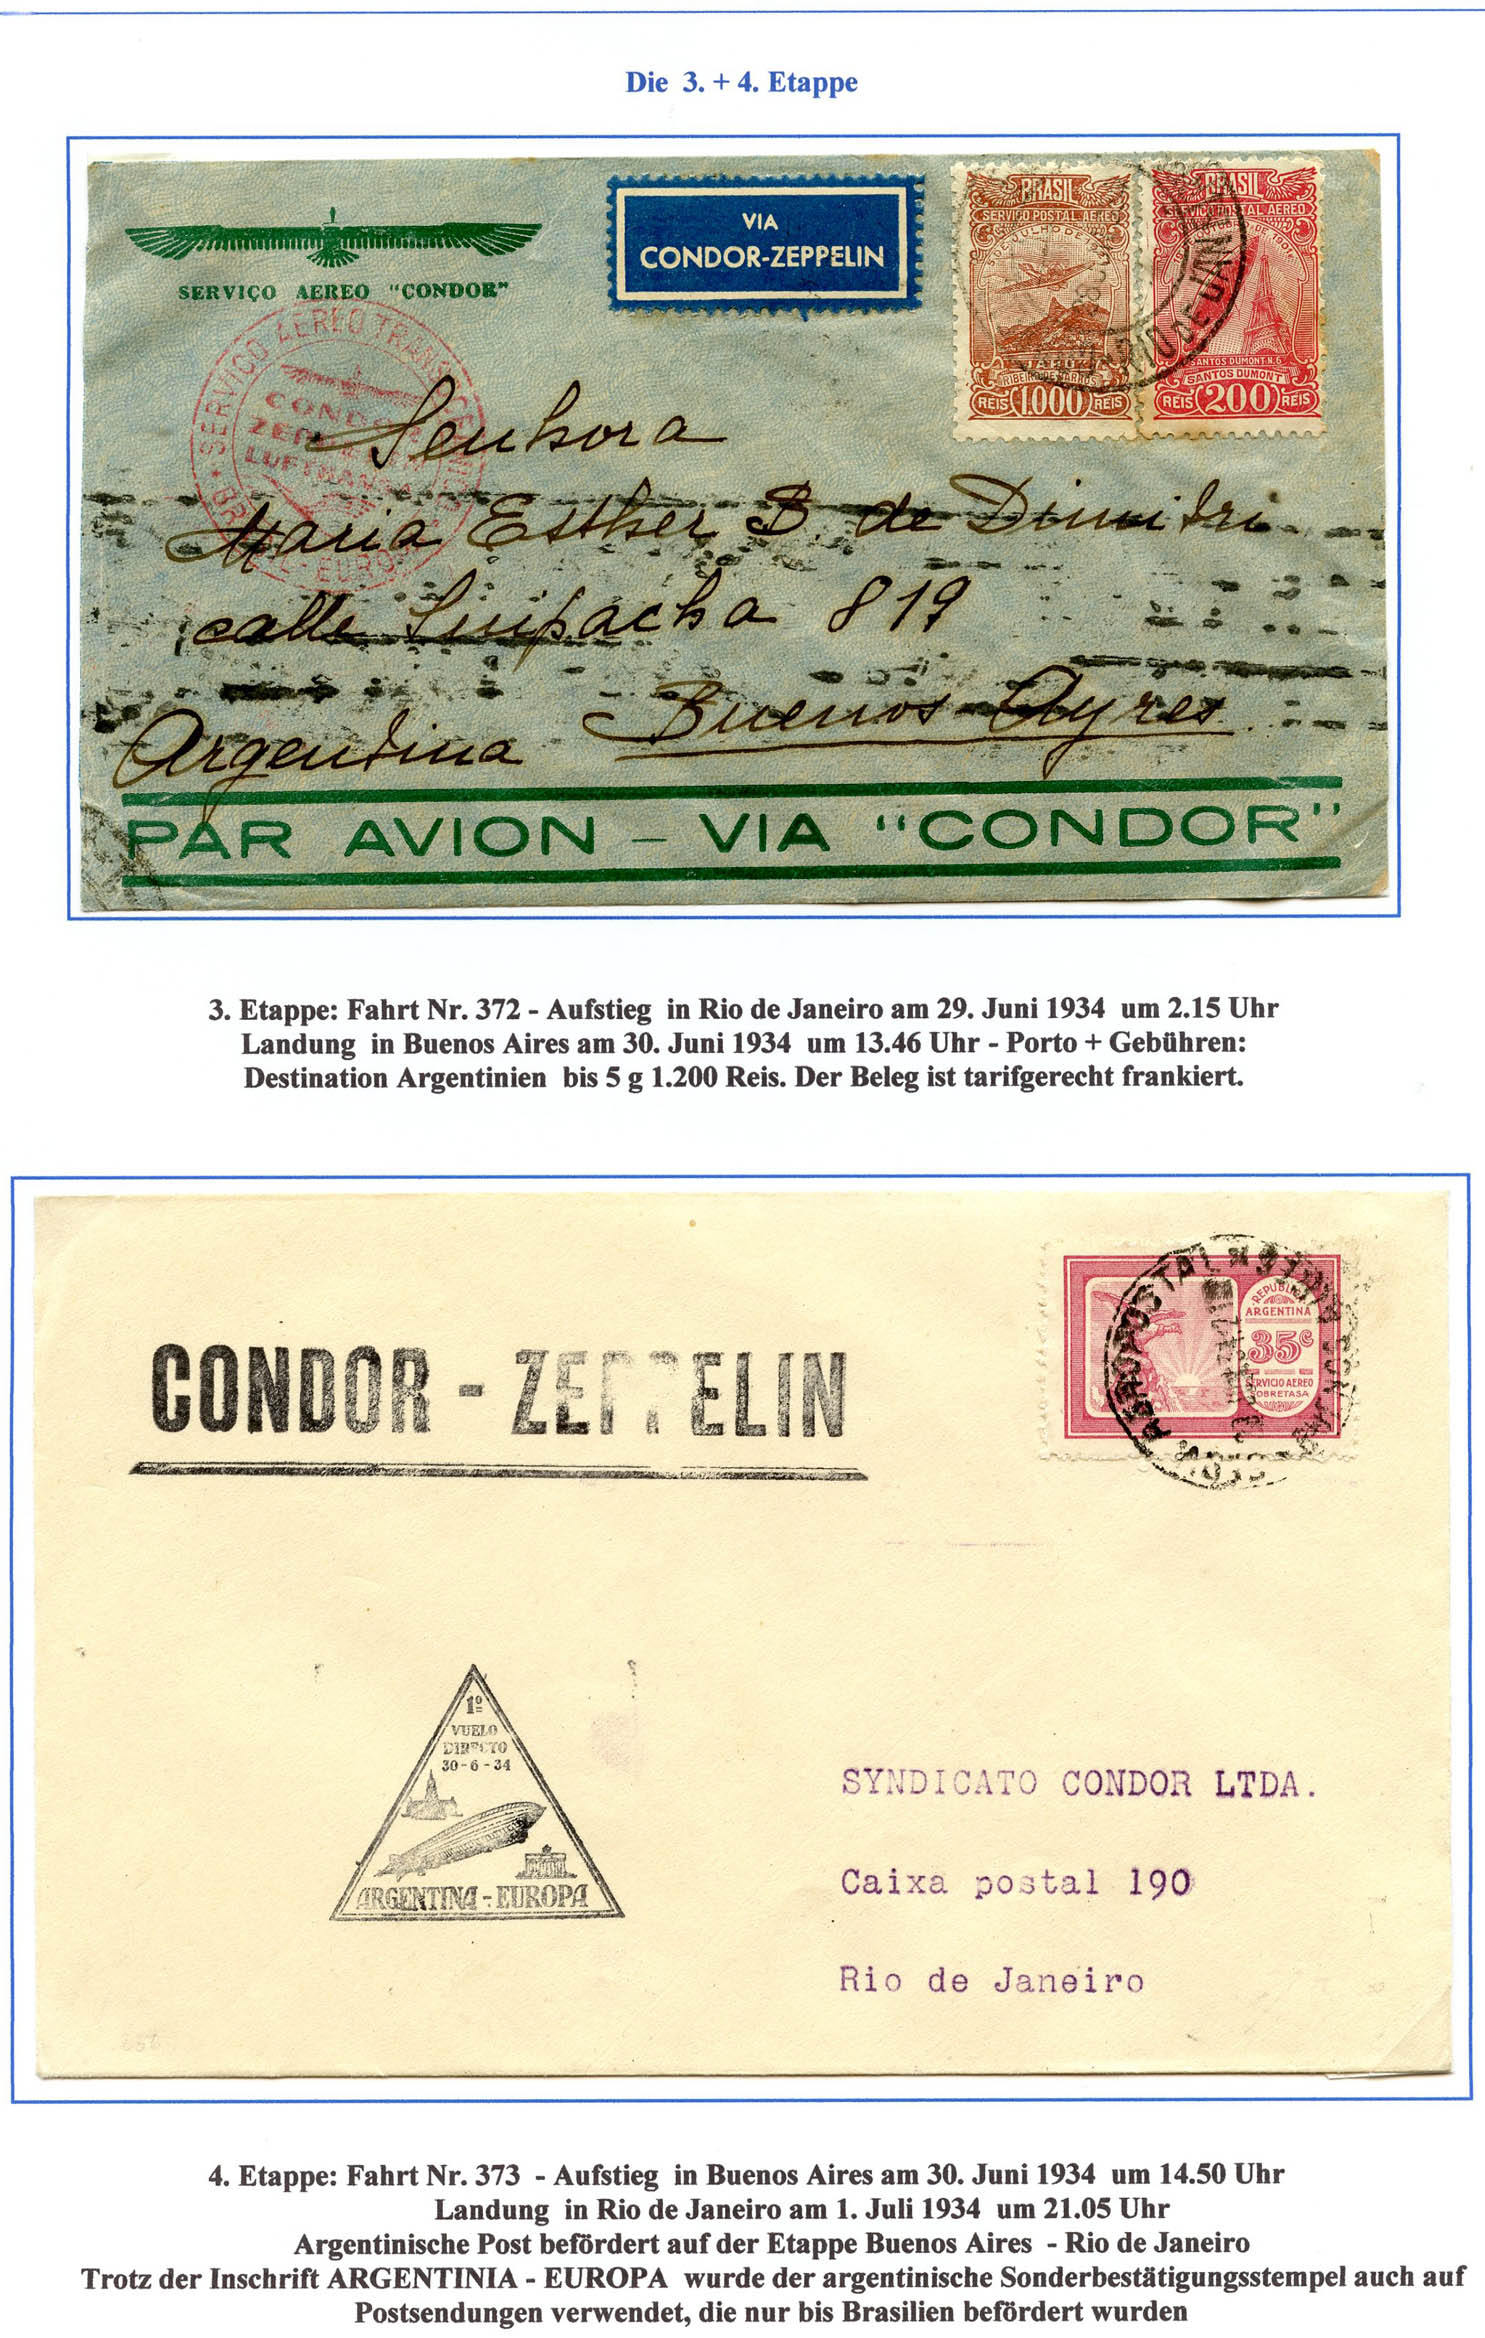 Die 3. + 4. Etappe
SERVIÇO AEREO "CONDOR"
VIA
CONDOR-ZEPPELIN
BRASIL
SERVIÇO POSTAL AEREO
RIBEIRO DE BARROS
REIS 1.000 REIS
BRASIL
SERVIÇO POSTAL AEREO
SANTOS DUMONT N. 6
SANTOS DUMONT
REIS 200 REIS
RIO DE JAN
SERVIÇO AEREO TRANSOCEANICO
CONDOR
ZEPPELIN
LUFTHANSA
BRASIL-EUROPA
Senhora
Maria Esther B de Dimitri
calle Suipacha 819
Buenos Ayres
Argentina
PAR AVION - VIA "CONDOR"
3. Etappe: Fahrt Nr. 372 - Aufstieg in Rio de Janeiro am 29. Juni 1934 um 2.15 Uhr
Landung in Buenos Aires am 30. Juni 1934 um 13.46 Uhr - Porto + Gebühren:
Destination Argentinien bis 5 g 1.200 Reis. Der Beleg ist tarifgerecht frankiert.
CONDOR - ZEPPELIN
REPUBLICA
ARGENTINA
35c
SERVICIO AEREO
SOBRETASA
AEROPOSTAL
1º
VUELO
DIRECTO
30-6-34
ARGENTINA-EUROPA
SYNDICATO CONDOR LTDA.
Caixa postal 190
Rio de Janeiro
4. Etappe: Fahrt Nr. 373 - Aufstieg in Buenos Aires am 30. Juni 1934 um 14.50 Uhr
Landung in Rio de Janeiro am 1. Juli 1934 um 21.05 Uhr
Argentinische Post befördert auf der Etappe Buenos Aires - Rio de Janeiro
Trotz der Inschrift ARGENTINIA - EUROPA wurde der argentinische Sonderbestätigungsstempel auch auf
Postsendungen verwendet, die nur bis Brasilien befördert wurden